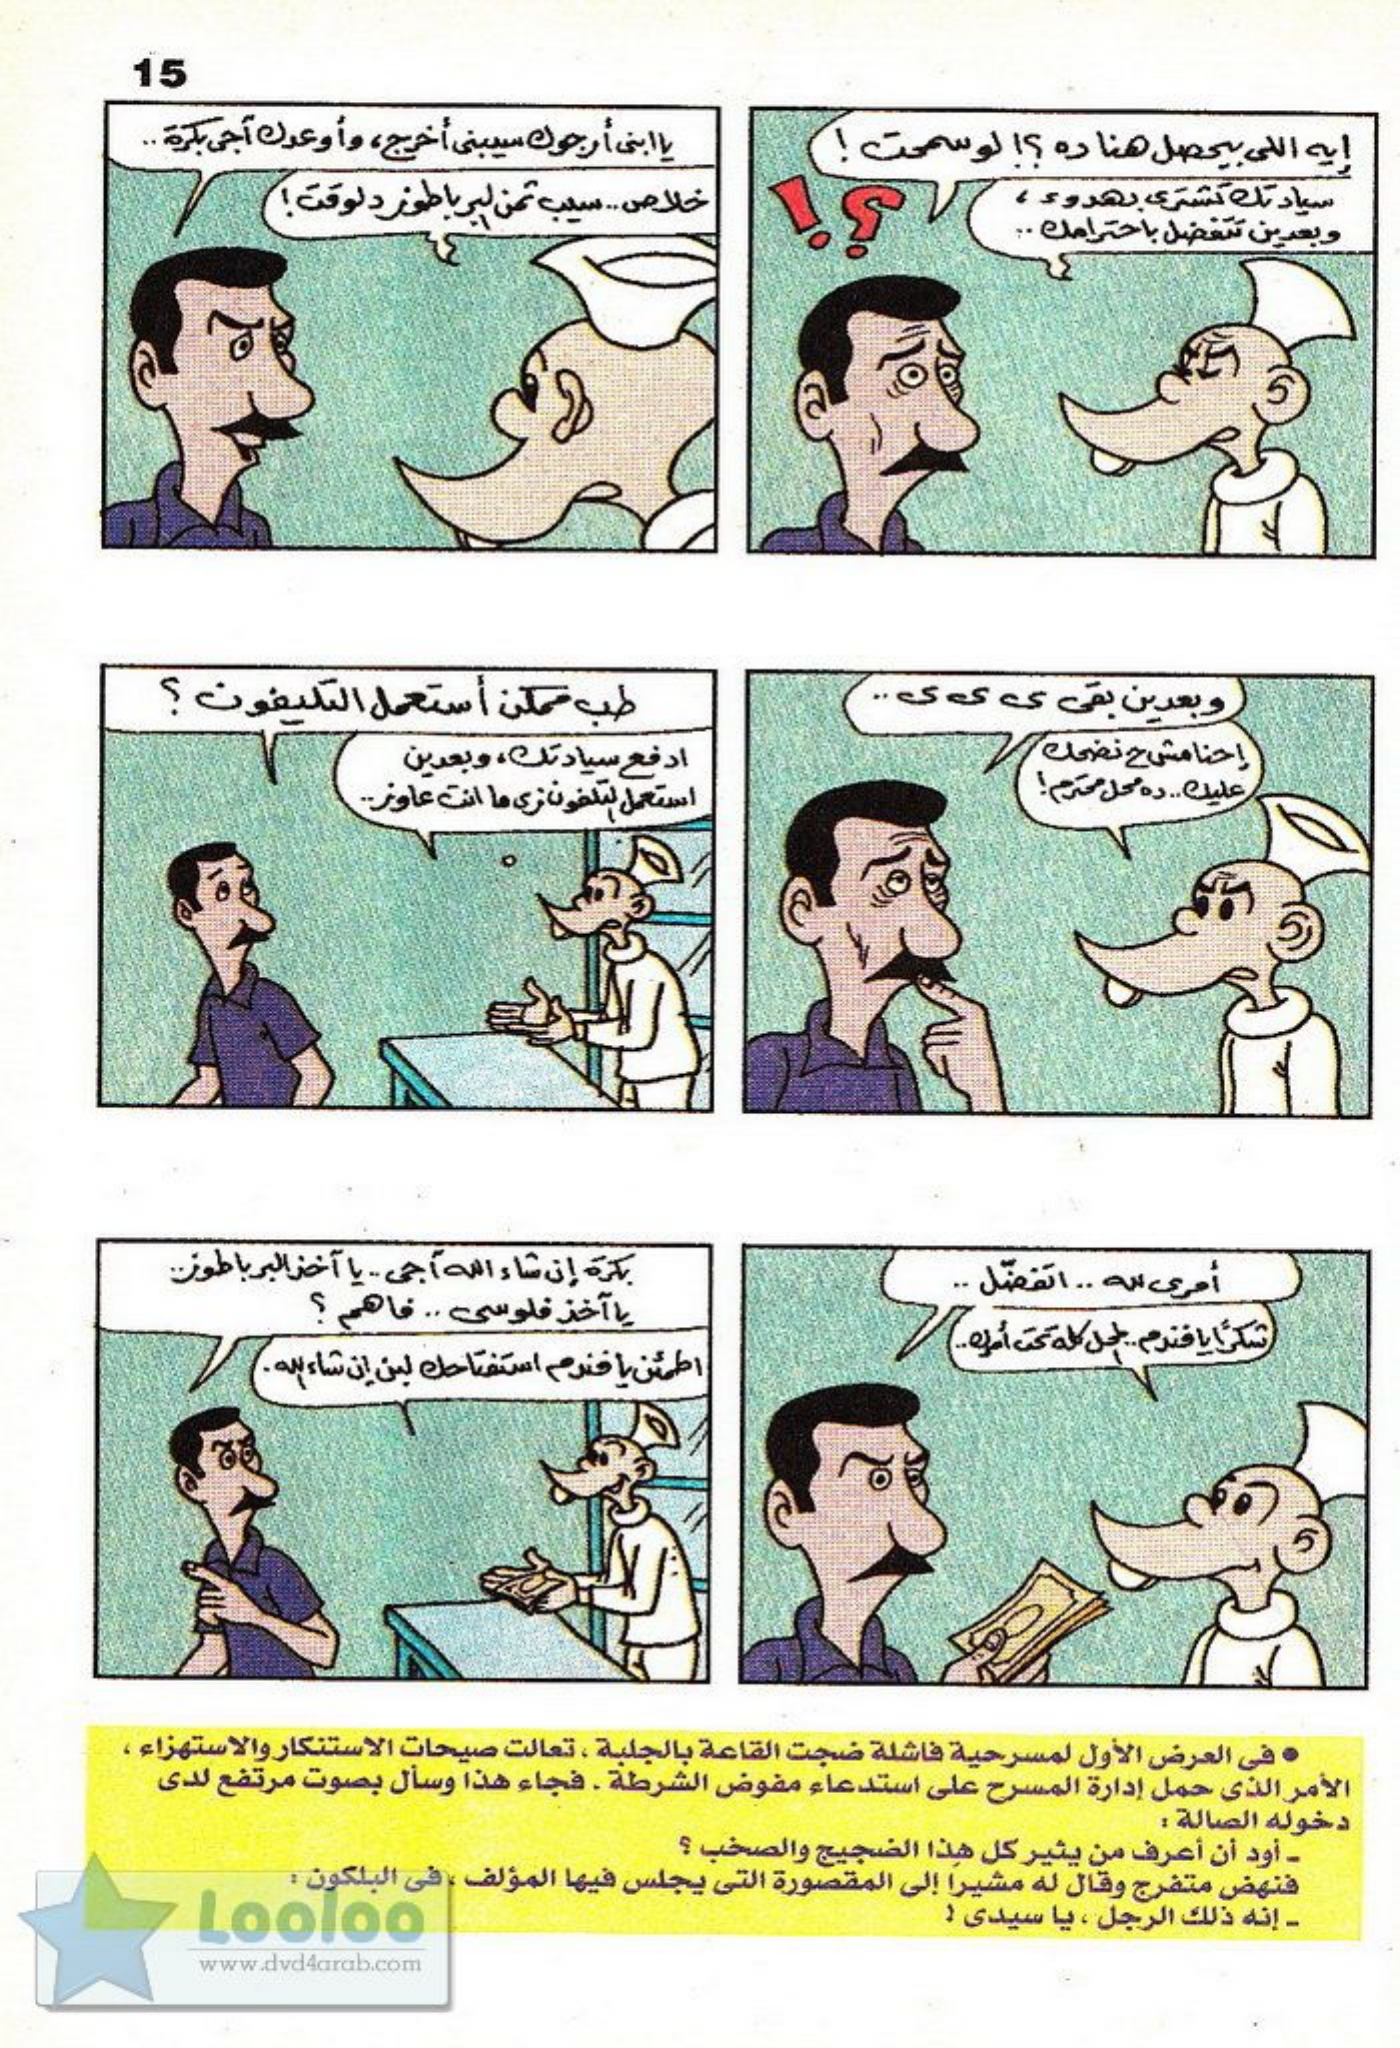 15
إيه اللى بيحصل هنا ده ؟! لو سمحت !
سيادتك تشترى بهدوء ،
وبعدين تتفضل باحترامك ..
!؟
يا ابنى أرجوك سيبنى أخرج ، وأوعدك آجى بكرة ..
خلاص .. سيب تمن البرباطوز دلوقت !
وبعدين بقى ى ى ى ..
إحنا مش ح نضحك
عليك .. ده محل محترم !
طب ممكن أستعمل التليفون ؟
ادفع سيادتك ، وبعدين
استعمل التلفون زى ما انت عاوز ..
أمرى لله .. اتفضّل ..
شكرًا يا فندم .. المحل كله تحت أمرك ..
بكرة إن شاء الله آجى .. يا آخذ البرباطوز ..
يا آخذ فلوسى .. فاهم ؟
اطمئن يا فندم استفتاحك لبن إن شاء الله .
● فى العرض الأول لمسرحية فاشلة ضجت القاعة بالجلبة ، تعالت صيحات الاستنكار والاستهزاء ،
الأمر الذى حمل إدارة المسرح على استدعاء مفوض الشرطة . فجاء هذا وسأل بصوت مرتفع لدى
دخوله الصالة :
ـ أود أن أعرف من يثير كل هذا الضجيج والصخب ؟
فنهض متفرج وقال له مشيرا إلى المقصورة التى يجلس فيها المؤلف ، فى البلكون :
ـ إنه ذلك الرجل ، يا سيدى !
Looloo
www.dvd4arab.com